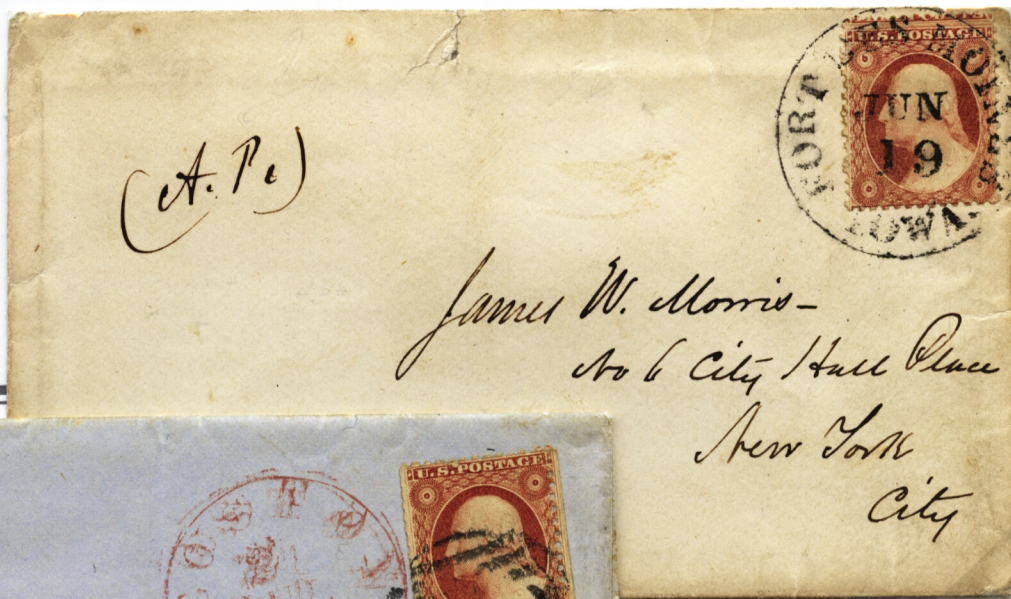 U.S. POSTAGE
FORT DES MOINES
JUN
19
IOWA.
(A. P.)
James W. Morris-
No 6 City Hall Place
New York
City
U.S. POSTAGE